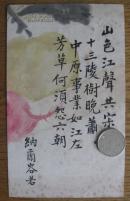 山色江聲共寂
十三陵樹晚蕭
中原事業如江左
芳草何須怨六朝
納爾容若